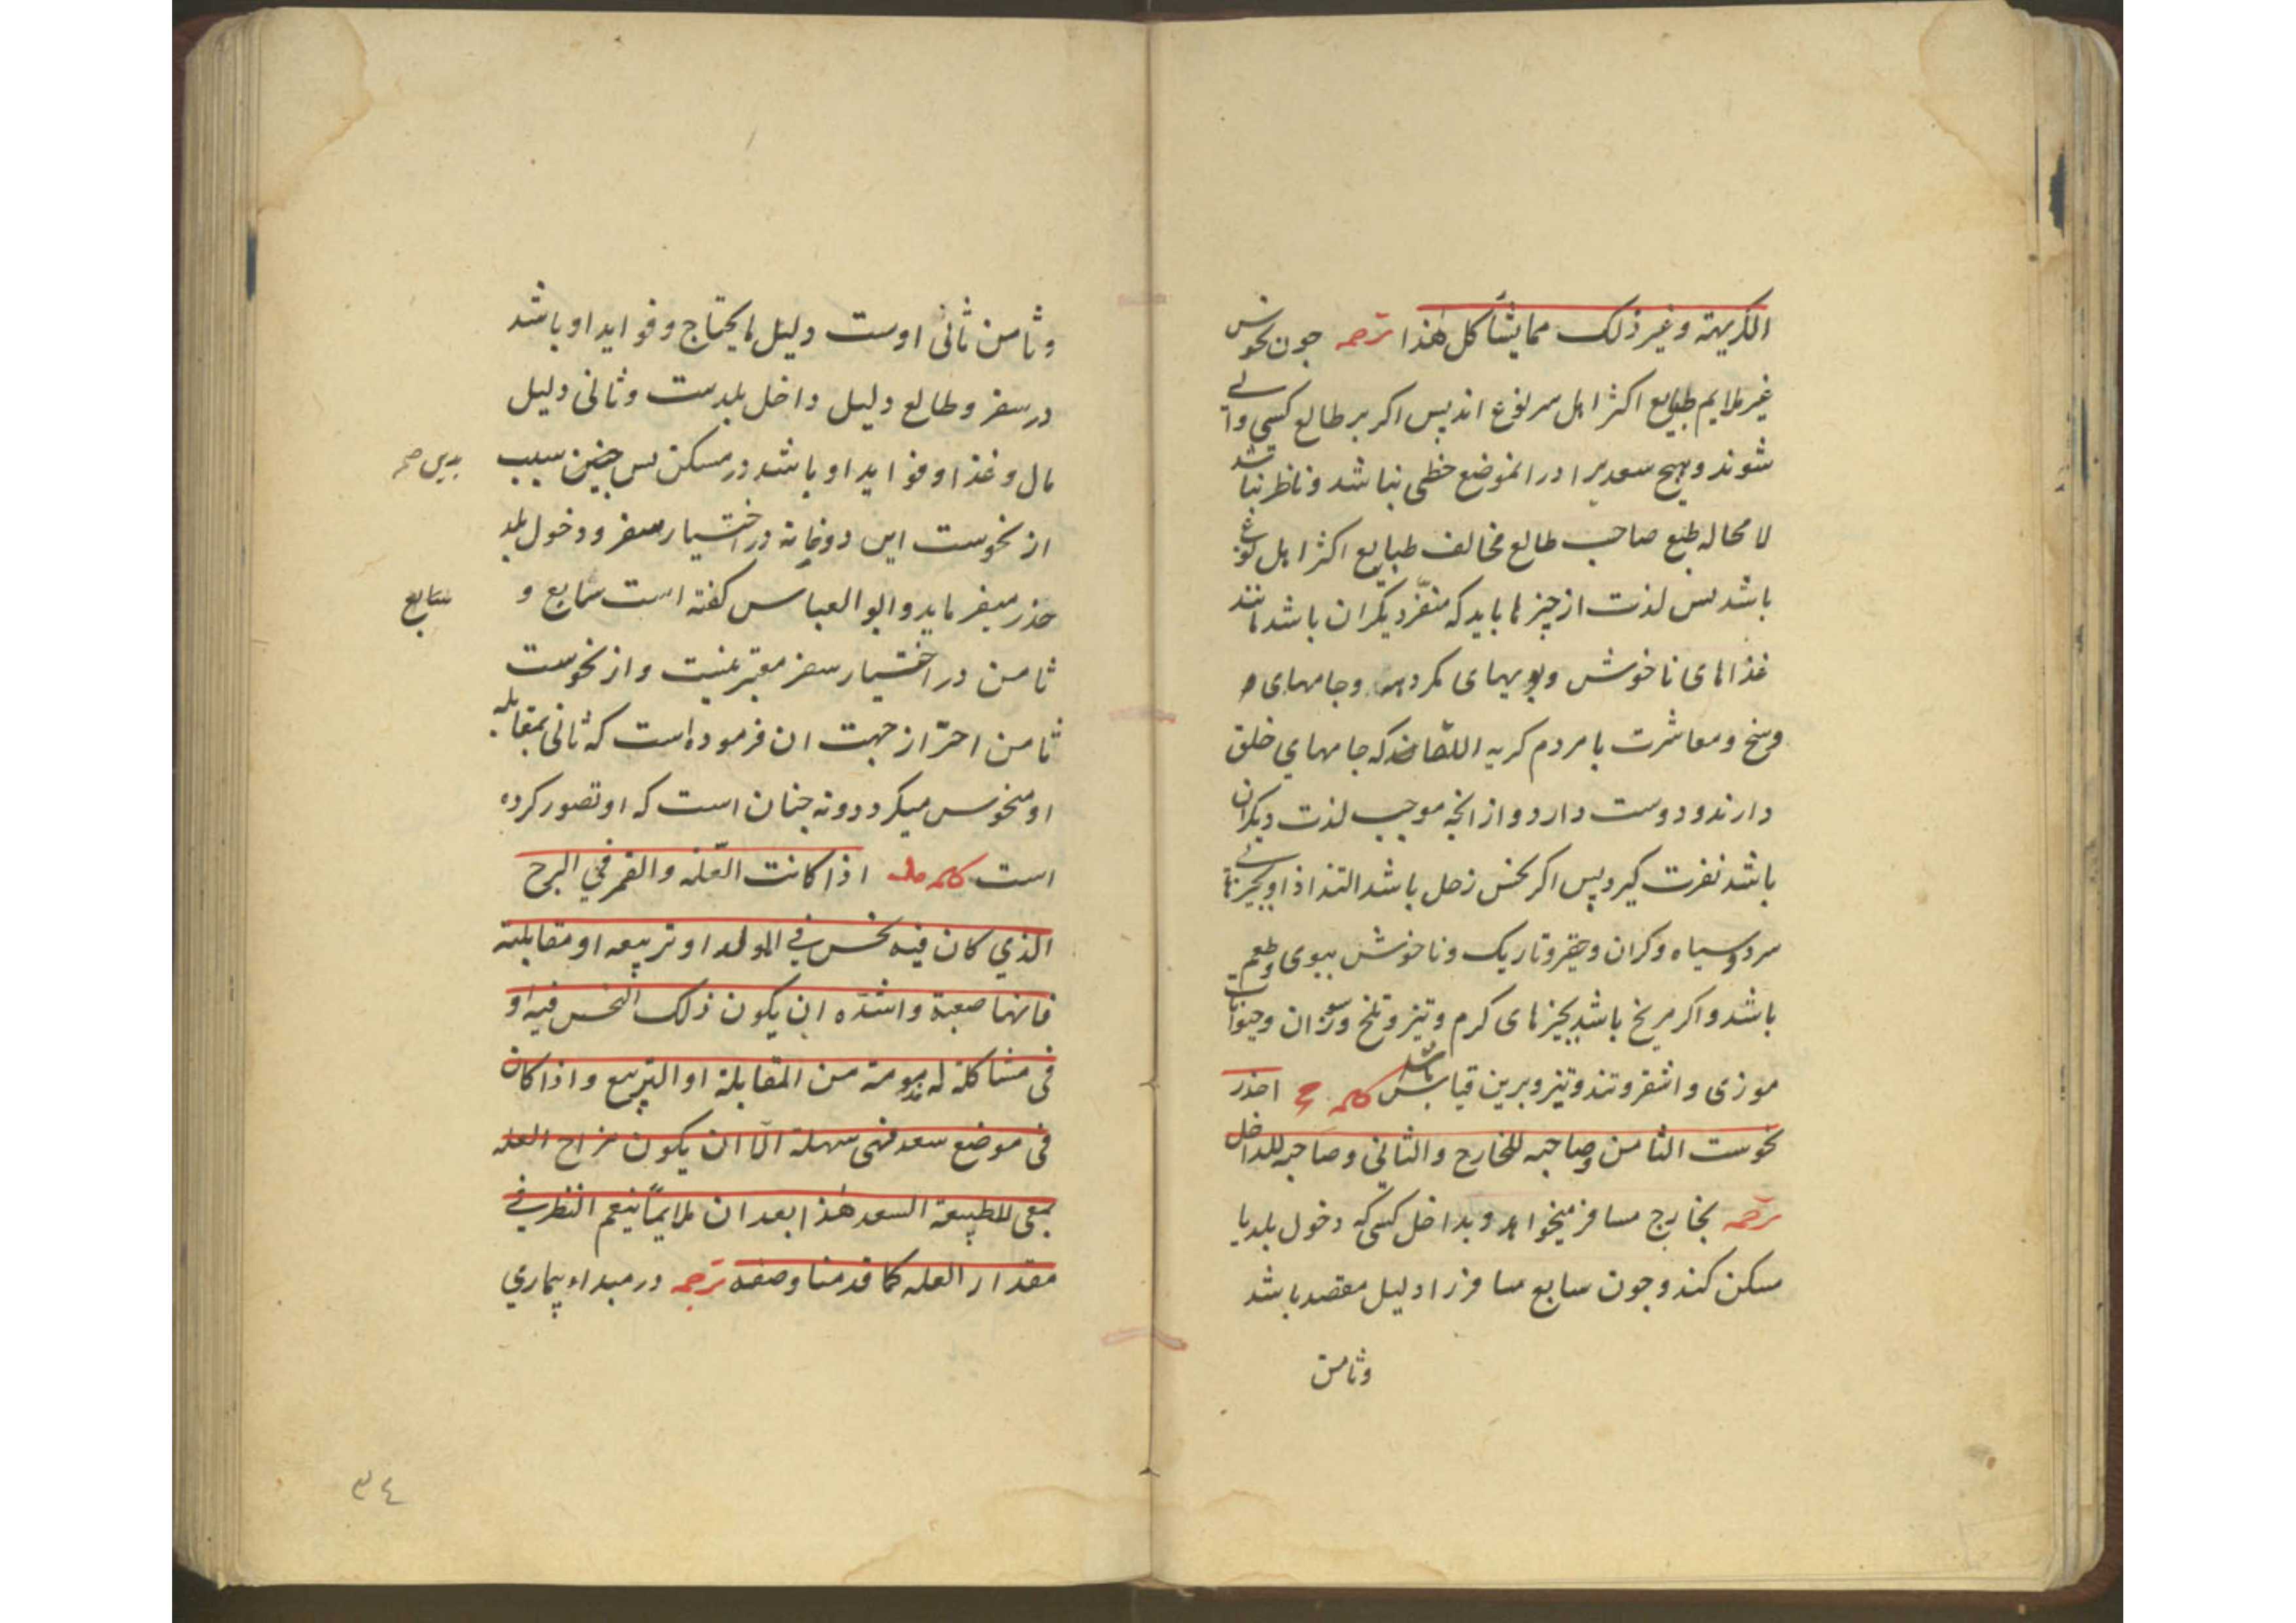 الكريهة وغير ذلك مما يشاكل هذا ترجمه جون نحوس
غير ملايم طبايع اكثر اهل هر نوع اند پس اكر بر طالع كسى والے
شوند و هيچ سعد يرا در انموضع حظى نباشد و ناظر نباشد
لا محاله طبع صاحب طالع مخالف طبايع اكثر اهل نوع
باشد پس لذت از چيزها يابد كه منفر ديكران باشد مانند
غذاهاى ناخوش و بويهاى مكروه و جامهاى
وسخ و معاشرت با مردم كريه اللقا كه جامهاي خلق
دارند و دوست دارد و از انچه موجب لذت ديكران
باشد نفرت كيرد پس اكر نحس زحل باشد التذاذ او بچيزهائے
سرد و سياه و كران و حقير و تاريك و ناخوش ببوى و طعم
باشد و اكر مريخ باشد بچيزهاى كرم و تيز و تلخ و سوزان و حيوانات
موذى و اشقر و تند و تيز و برين قياس باشد كلمه احذر
نحوست الثامن و صاحبه للخارج والثاني و صاحبه للداخل
ترجمه بخارج مسافر ميخواهد و بداخل كسى كه دخول بلد يا
مسكن كند و جون سابع مسافر را دليل مقصد باشد
وثامن
وثامن ثانى اوست دليل ما يحتاج و فوايد او باشد
در سفر و طالع دليل داخل بلدست و ثانى دليل
مال و غذا و فوايد او باشد در مسكن پس چنين سبب
بدين صح
از نحوست اين دو خانه در اختيار سفر و دخول بلد
حذر ميفرمايد و ابو العباس كفته است سابع و
سابع
ثامن در اختيار سفر معتبر نيست و از نحوست
ثامن احتراز جهت ان فرموده است كه ثانى بمقابله
او منحوس ميكردد و نه چنان است كه او تصور كرده
است كلمه اذا كانت العلة والقمر في البرج
الذي كان فيه نحس في المولد او تربيعه او مقابلته
فانها صعبة واشده ان يكون ذلك النحس فيه او
في مشاكلة له مذمومة من المقابلة او التربيع واذا كان
في موضع سعد فهى سهلة الا ان يكون مزاج العله
بمعى للطبيعة السعد هذا بعد ان ملايمًا ينعم النظر في
مقدار العله كما قدمنا وصفه ترجمه در مبداء بيماري
٣٤